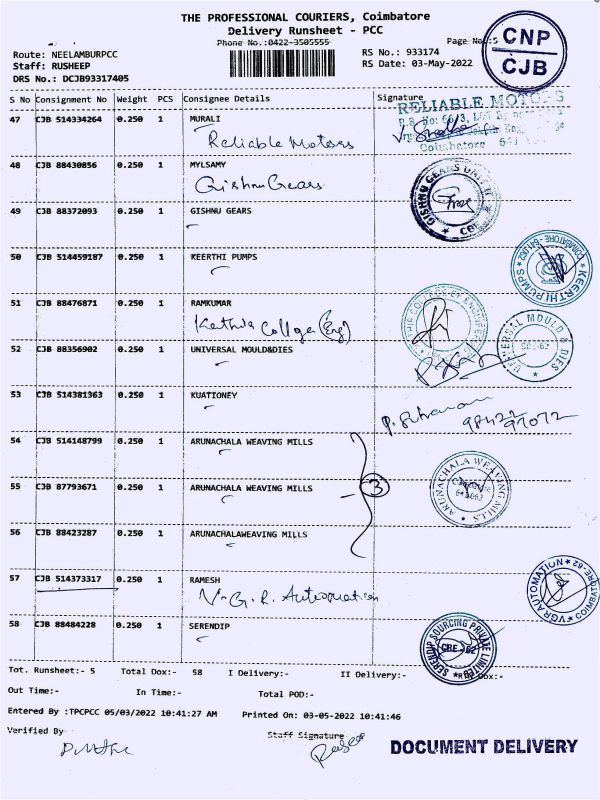 THE PROFESSIONAL COURIERS, Coimbatore
Delivery Runsheet - PCC
Phone No.:0422-3505555
Page No.:5
CNP
CJB
Route: NEELAMBURPCC
Staff: RUSHEEP
DRS No.: DCJB93317405
RS No.: 933174
RS Date: 03-May-2022
S No Consignment No Weight PCS Consignee Details Signature
47 CJB 514334264 0.250 1 MURALI
Reliable Motors
RELIABLE MOTORS
Coimbatore
48 CJB 88430856 0.250 1 MYLSAMY
Gishnu Gears
GISHNU GEARS
CBE
49 CJB 88372093 0.250 1 GISHNU GEARS
50 CJB 514459187 0.250 1 KEERTHI PUMPS
KEERTHI PUMPS
COIMBATORE - 641 062
51 CJB 88476871 0.250 1 RAMKUMAR
College (Eng)
COLLEGE OF ENGINEERING
52 CJB 88356902 0.250 1 UNIVERSAL MOULD&DIES
UNIVERSAL MOULD & DIES
CBE-62
53 CJB 514381363 0.250 1 KUATIONEY
54 CJB 514148799 0.250 1 ARUNACHALA WEAVING MILLS
55 CJB 87793671 0.250 1 ARUNACHALA WEAVING MILLS
3
ARUNACHALA WEAVING MILLS
Coimbatore
641 062
56 CJB 88423287 0.250 1 ARUNACHALAWEAVING MILLS
57 CJB 514373317 0.250 1 RAMESH
V.G.R. Automation
VGR AUTOMATION
COIMBATORE-62
58 CJB 88484228 0.250 1 SERENDIP
SERENDIP SOURCING PRIVATE LIMITED
CBE-62
Tot. Runsheet:- 5 Total Dox:- 58 I Delivery:- II Delivery:- Dox:-
Out Time:- In Time:- Total POD:-
Entered By :TPCPCC 05/03/2022 10:41:27 AM Printed On: 03-05-2022 10:41:46
Verified By
Staff Signature
DOCUMENT DELIVERY